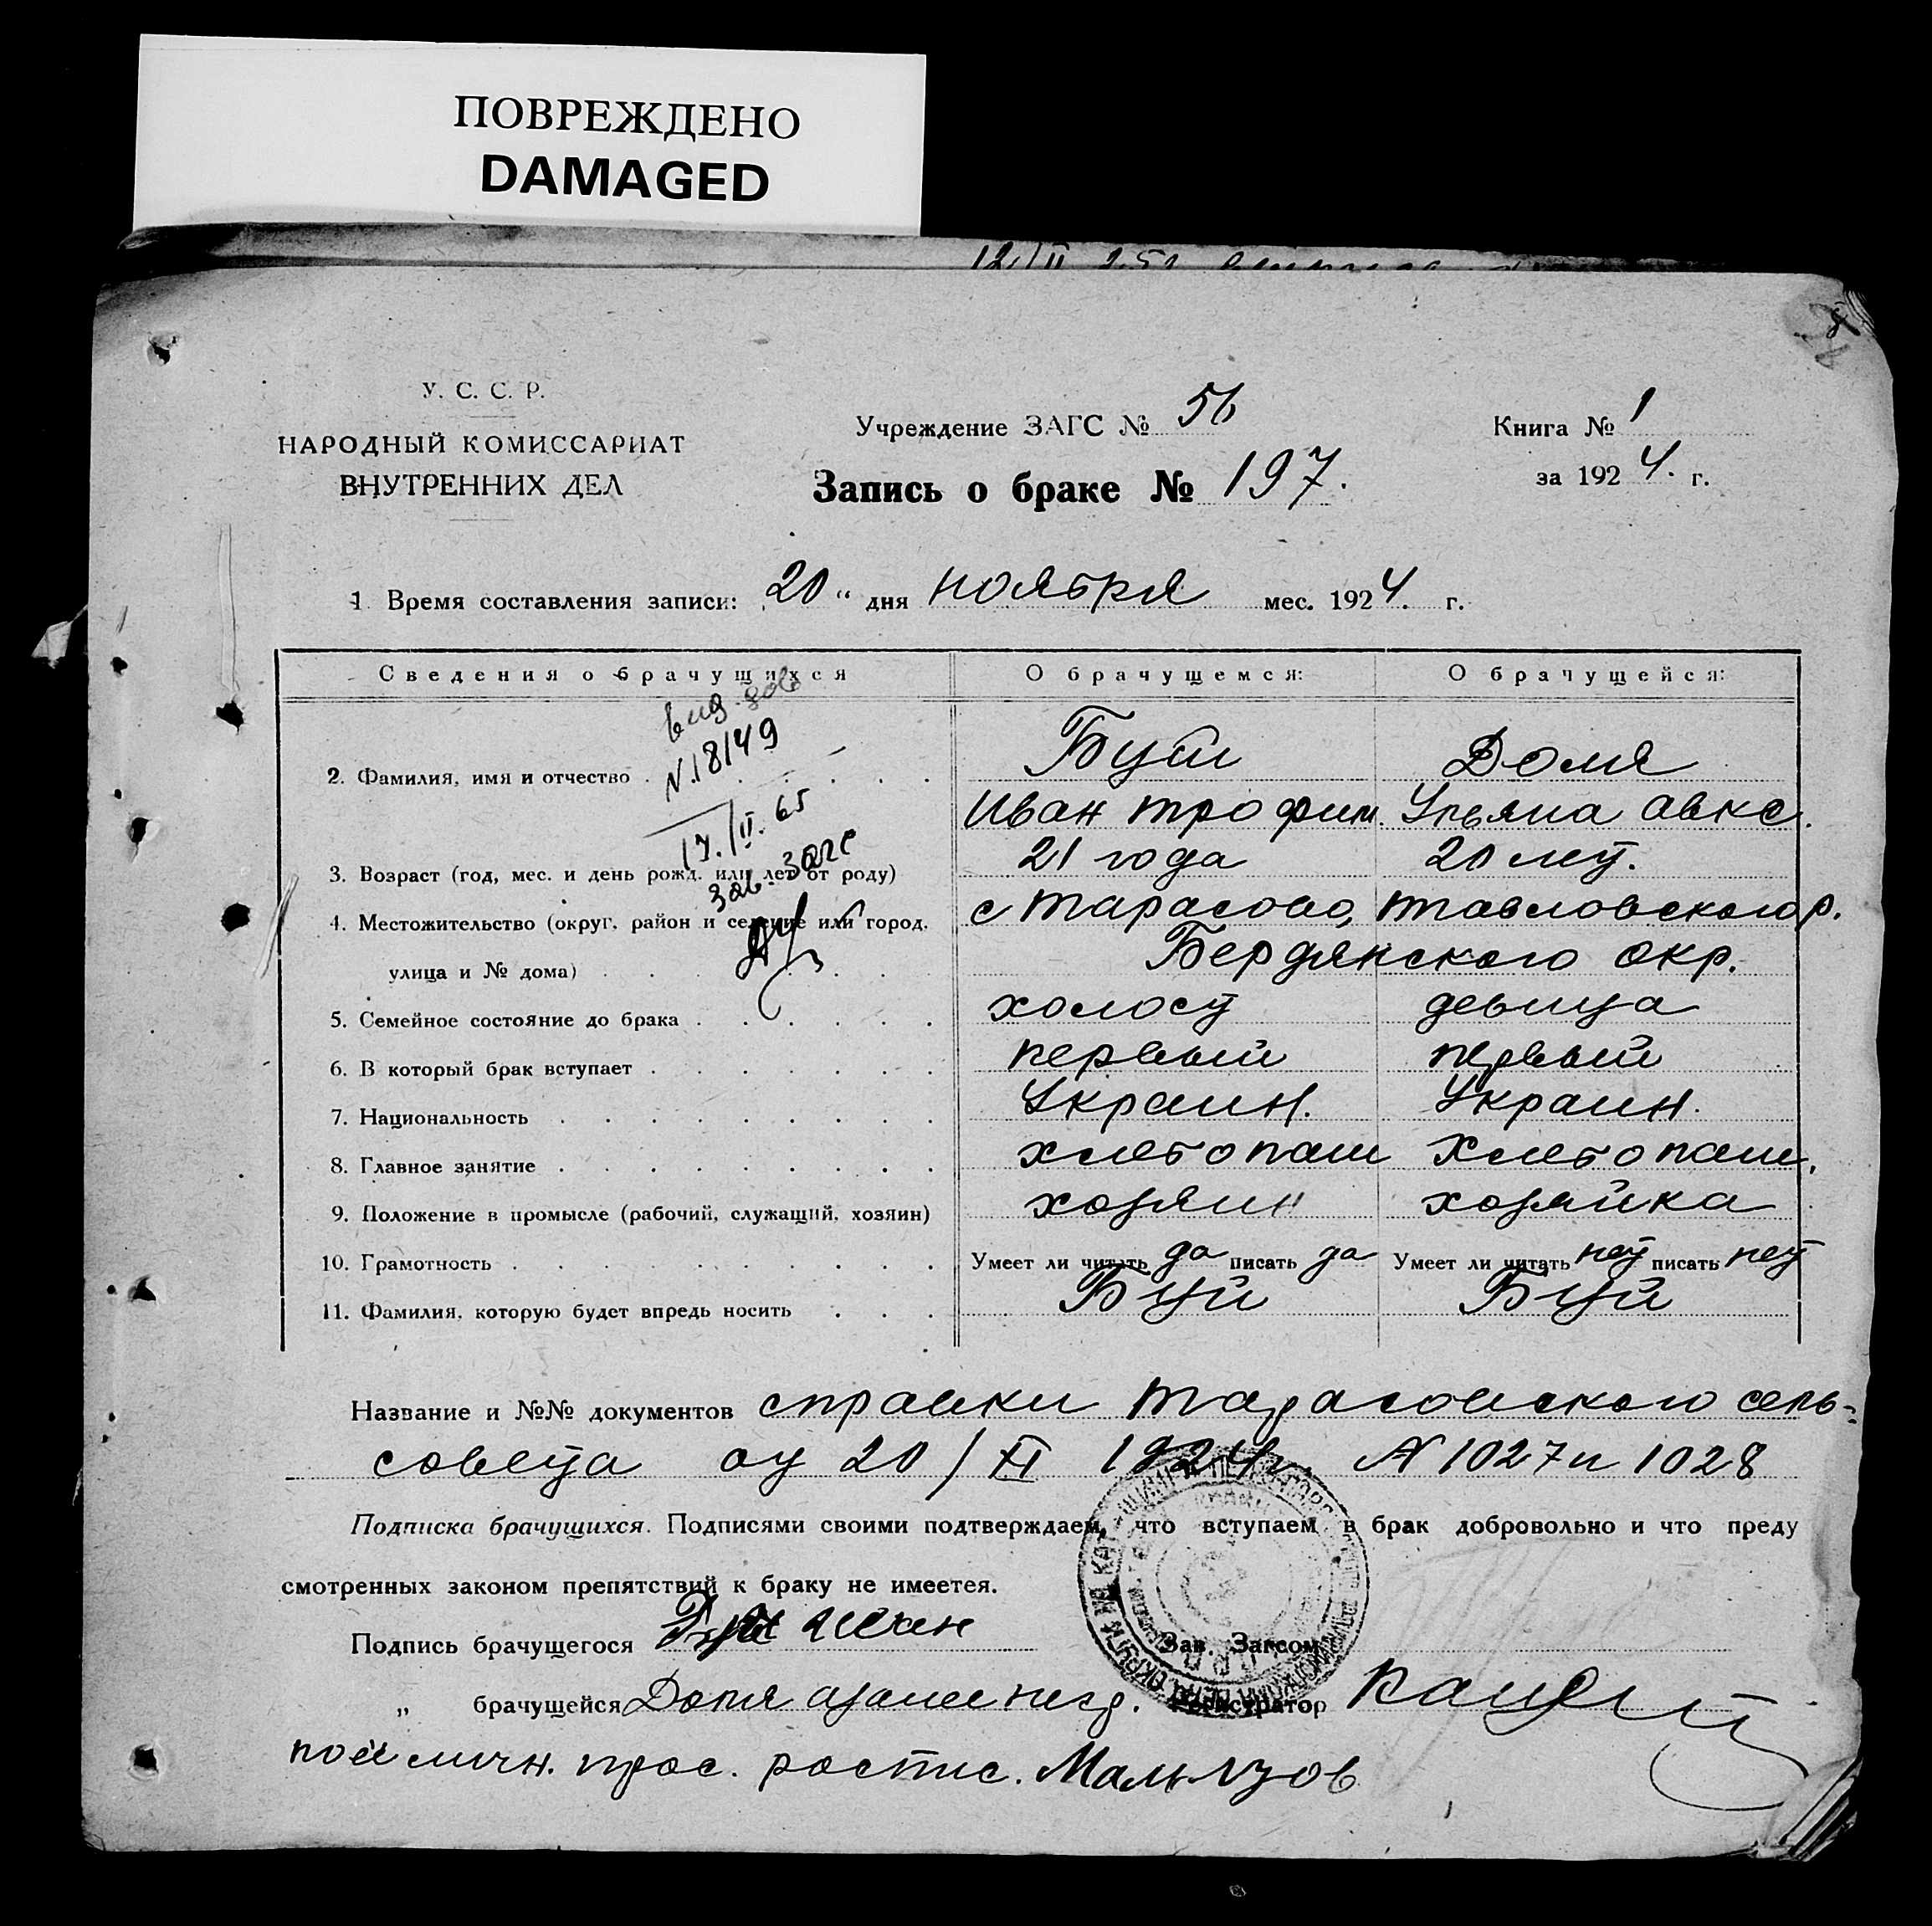 ПОВРЕЖДЕНО
DAMAGED
У. С. С. Р.
НАРОДНЫЙ КОМИССАРИАТ
ВНУТРЕННИХ ДЕЛ
Учреждение ЗАГС № 56
Запись о браке № 197.
Книга № 1
за 1924. г.
1. Время составления записи: „20“ дня ноября мес. 1924. г.
Сведения о брачущихся О брачущемся: О брачущейся:
N.18149
17./II. 65
зав. загс
2. Фамилия, имя и отчество Буй Доля
Иван Трофим. Ульяна Авкс.
3. Возраст (год, мес. и день рожд. или лет от роду) 21 года 20 лет.
4. Местожительство (округ, район и селение или город, с Тарасово, Павловского р.
улица и № дома) Бердянского окр.
5. Семейное состояние до брака холост девица
6. В который брак вступает первый первый
7. Национальность Украин. Украин.
8. Главное занятие хлебопаш хлебопаш.
9. Положение в промысле (рабочий, служащий, хозяин) хозяин хозяйка
10. Грамотность Умеет ли читать да писать да Умеет ли читать нет писать нет
11. Фамилия, которую будет впредь носить Буй Буй
Название и №№ документов справки Тарасовского сель-
совета от 20/XI 1924 г. N 1027 и 1028
Подписка брачущихся. Подписями своими подтверждаем, что вступаем в брак добровольно и что преду
смотренных законом препятствий к браку не имеется.
Подпись брачущегося Буй Иван
Зав. Загсом
„ брачущейся Доля а за нее негр.
Регистратор
по её личн. прос. распис.